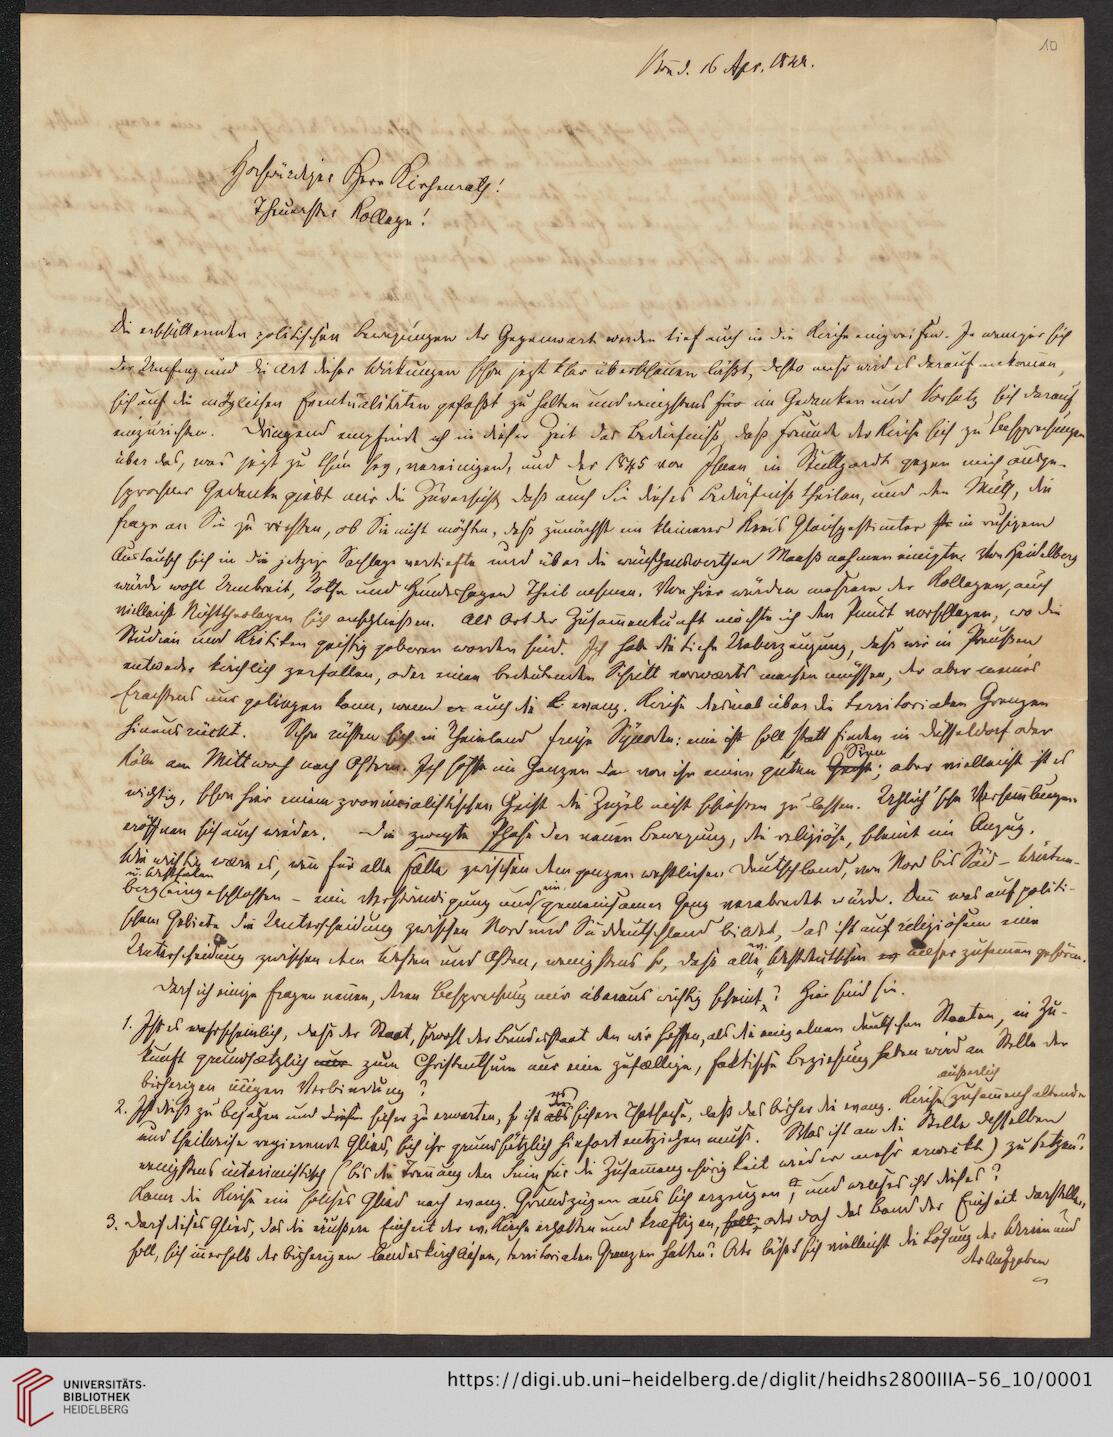 10
Bonn d. 16 Apr. 1848.
Hochwürdiger Herr Kirchenrath!
Theuerster Kollege!
Die erschütternden politischen Bewegungen der Gegenwart werden tief auch in die Kirche eingreifen. Je weniger sich
der Umfang und die Art dieser Wirkungen schon jetzt klar überschauen läßt, desto mehr wird es darauf ankomen,
sich auf die möglichen Eventualitäten gefaßt zu halten und wenigstens im Gedanken und Vorsatz sich darauf
einzurichten. Dringend empfinde ich in dieser Zeit das Bedürfniß, daß Freunde der Kirche sich zu Besprechungen
über das, was jetzt zu thun sey, vereinigen, und der 1845 von Ihnen in Stuttgardt gegen mich ausge-
sprochene Gedanke giebt mir die Zuversicht, daß auch Sie dieses Bedürfniß theilen, und den Muth, die
Frage an Sie zu richten, ob Sie nicht möchten, daß zunächst ein kleinerer Kreis Gleichgestimmter in ruhigem
Austausch sich in die jetzige Sachlage vertiefte und über die wünschenswerthen Maaßnahmen einigte. Von Heidelberg
würde wohl Umbreit, Rothe und Hundeshagen Theil nehmen. Von hier würden mehrere der Kollegen, auch
vielleicht Nichttheologen sich anschließen. Als Ort der Zusammenkunft möchte ich den Punct vorschlagen, wo die
Studien und Kritiken geistig geboren worden sind. Ich habe die tiefe Ueberzeugung, daß wir in Preußen
entweder kirchlich zerfallen, oder einen bedeutenden Schritt vorwärts machen müssen, der aber meines
Erachtens nur gelingen kann, wenn er auch die evang. Kirche diesmal über die territorialen Grenzen
hinausrückt. Schon rüsten sich in Rheinland freye Synoden: eine soll statt finden in Düsseldorf oder
Köln am Mittwoch nach Ostern. Ich hoffe im Ganzen von ihr einen guten Sinn; aber vielleicht ist es
wichtig, schon hier einem provincialistischen Geist die Zügel nicht schießen zu lassen. Uhlich'sche Versammlungen
eröffnen sich auch wieder. Die zweyte Phase der neuen Bewegung, die religiöse, scheint im Anzug.
Wie wichtig wäre es, wenn für alle Fälle zwischen dem ganzen westlichen Deutschland, von Nord bis Süd – Würtem-
u. Westfalen
berg eingeschlossen – eine Verständigung und ein gemeinsamer Gang verabredet würde. Denn was auf politi-
schem Gebiete die Unterscheidung zwischen Nord und Süddeutschland bildet, das ist auf religiösem eine
Unterscheidung zwischen dem Westen und Osten, wenigstens so, daß alle Westdeutschen näher zusammen gehören.
Darf ich einige Fragen nennen, deren Besprechung mir überaus wichtig scheint? Hier sind sie.
1. Ist es wahrscheinlich, daß der Staat, sowohl der Bundesstaat den wir hoffen, als die einzelnen deutschen Staaten, in Zu-
kunft grundsätzlich zum Christenthum nur eine zufällige, faktische Beziehung haben wird an Stelle der
bisherigen innigen Verbindung?
äußerlich
2. Ist dieß zu bejahen und sicher zu erwarten, so ist es sichere Thatsache, daß das bisher die evang. Kirche zusammenhaltende
und theilweise regierende Glied, sich ihr grundsätzlich hinfort entziehen muß. Was ist an die Stelle desselben
wenigstens interimistisch (bis die Trennung den Sinn für die Zusammengehörigkeit wieder mehr erweckt) zu setzen?
Kann die Kirche ein solches Glied nach evang. Grundzügen aus sich erzeugen, und welches ist dieses?
3. Darf dieses Glied, das die äußere Einheit der ev. Kirche erhalten und kräftigen, oder doch das Band der Einheit darstellen
soll, sich innerhalb der bisherigen landeskirchlichen, territorialen Grenzen halten? Oder läßt sich vielleicht die Lösung der Verein und
der Aufgaben
UNIVERSITÄTS-
BIBLIOTHEK
HEIDELBERG
https://digi.ub.uni-heidelberg.de/diglit/heidhs2800IIIA-56_10/0001